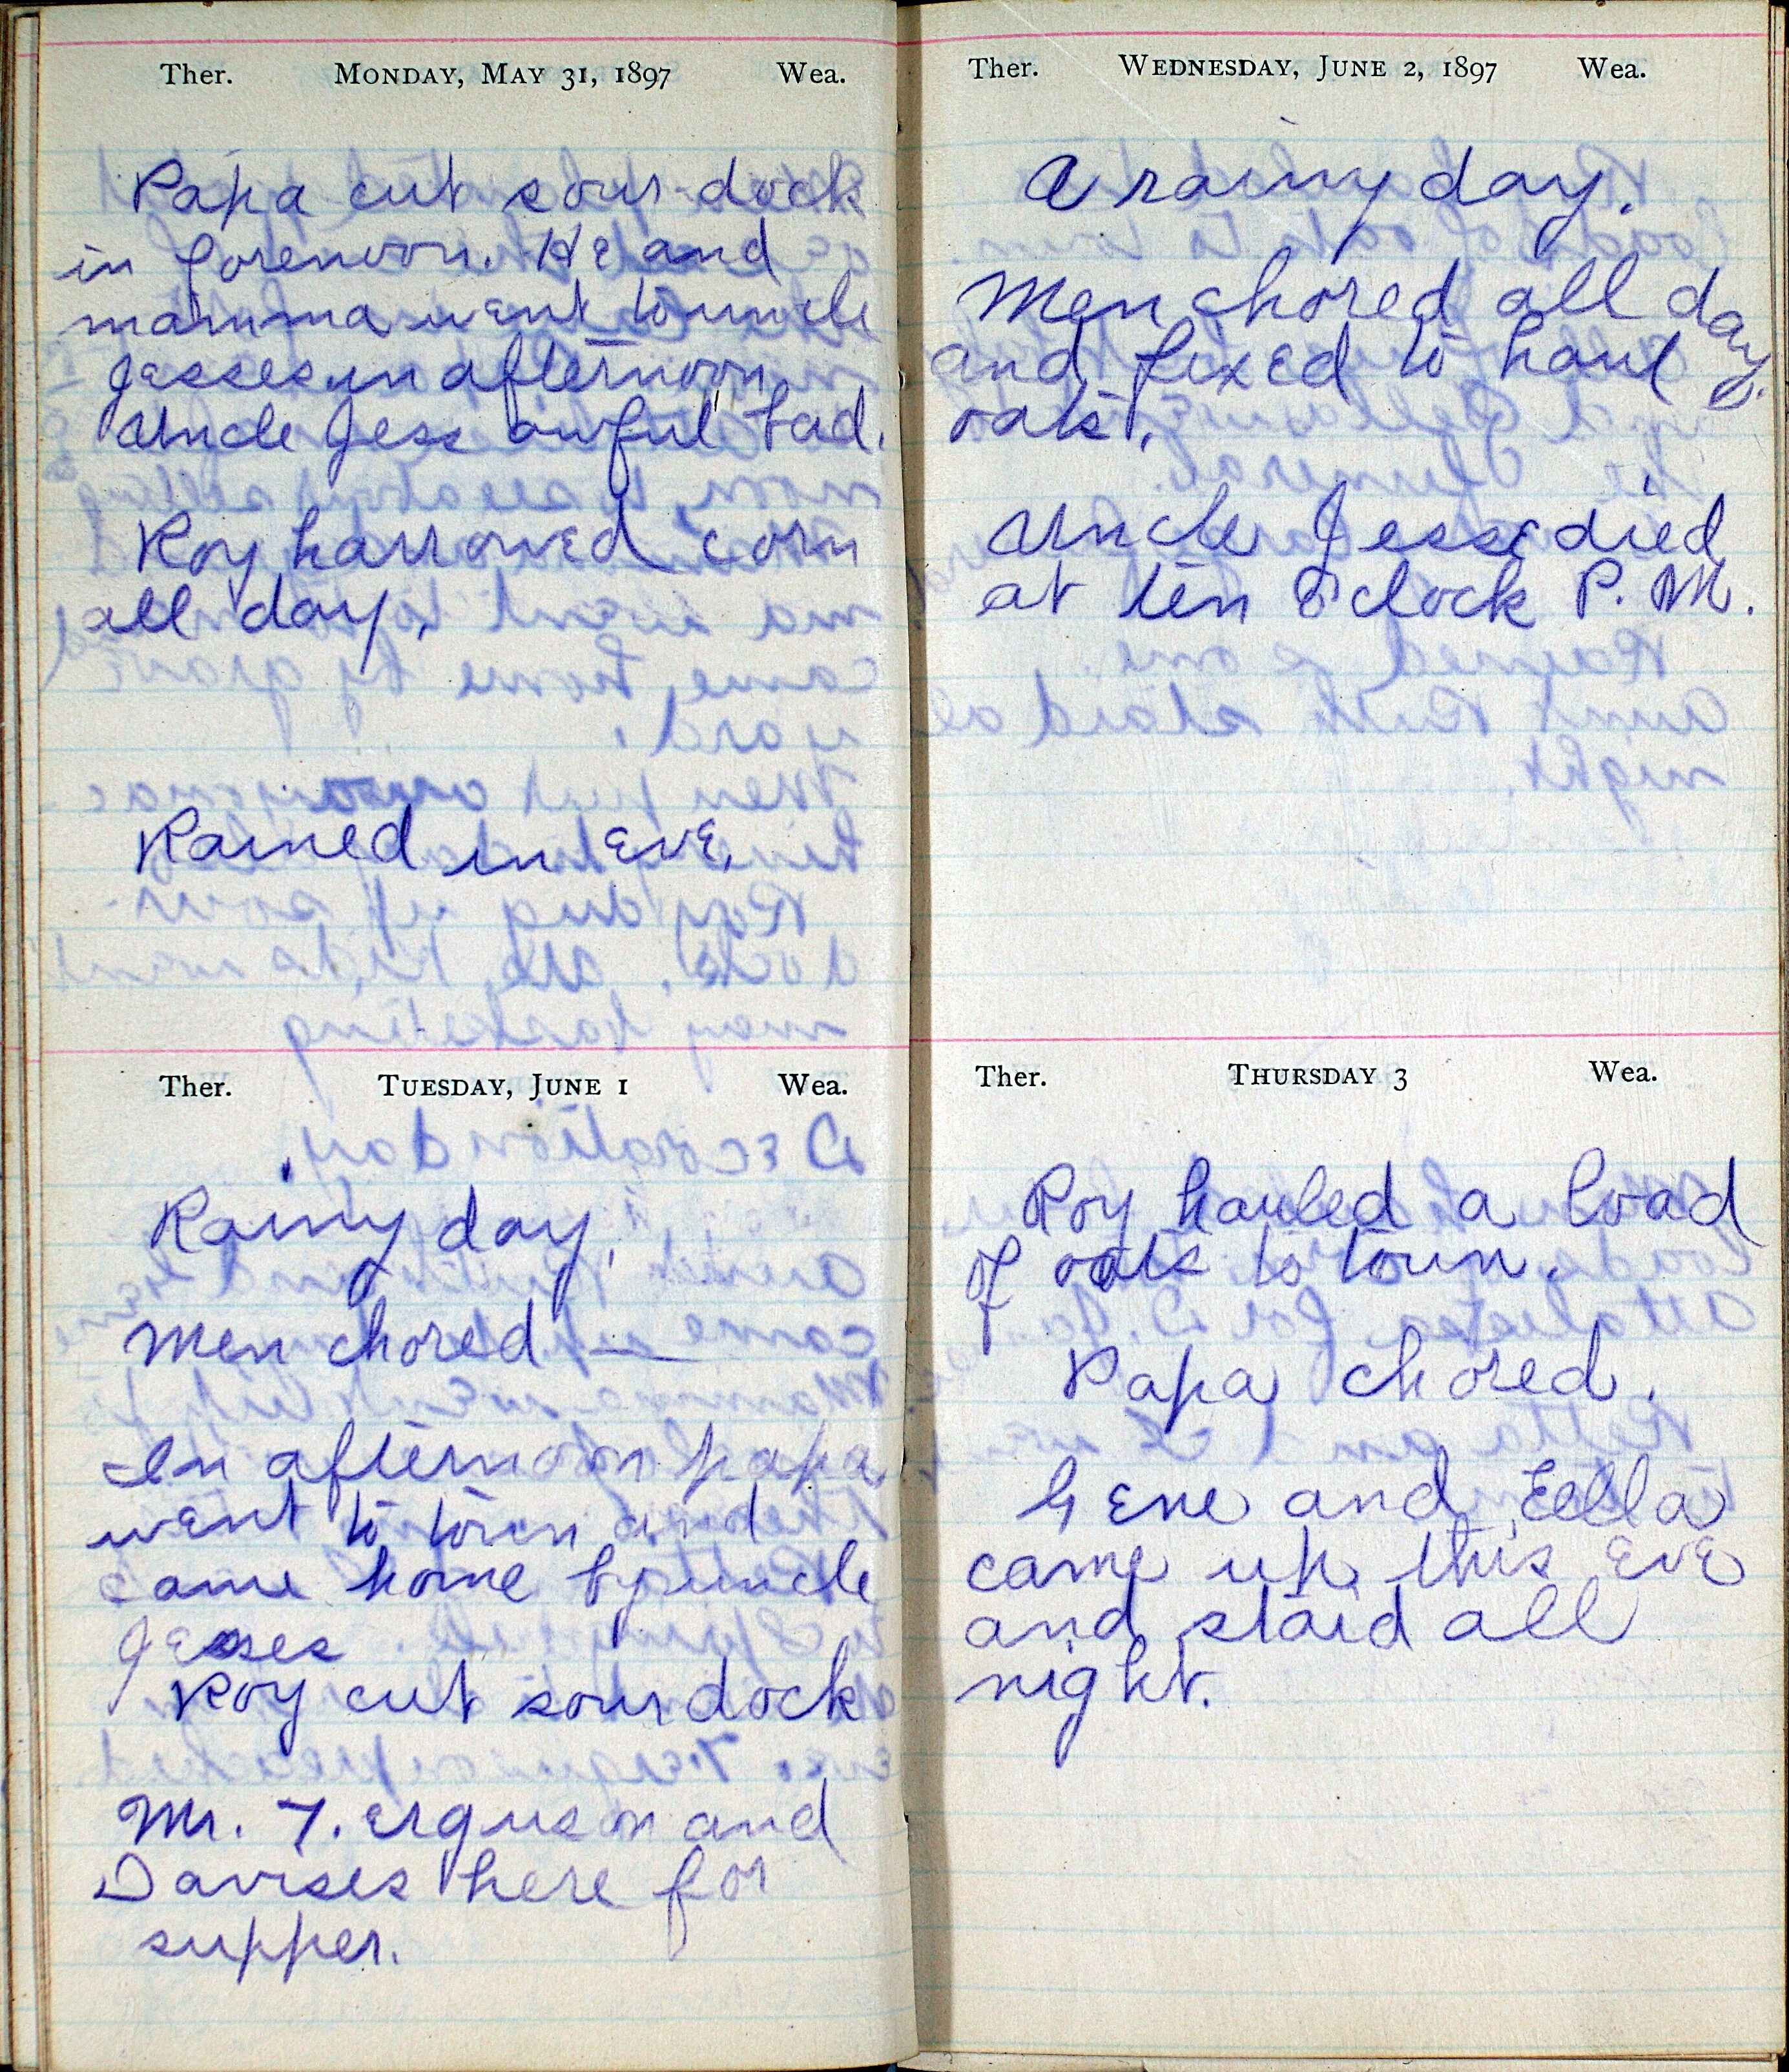 Ther. MONDAY, MAY 31, 1897 Wea.
Papa cut sour dock
in forenoon. He and
mamma went to uncle
Jesses in afternoon,
Uncle Jess awful bad.
Roy harrowed corn
all day.
Rained in eve.
Ther. TUESDAY, JUNE 1 Wea.
Rainy day.
Men chored —
In afternoon papa
went to town and
came home by uncle
Jesses
Roy cut sour dock
Mr. F. erguson and
Davises here for
supper.
Ther. WEDNESDAY, JUNE 2, 1897 Wea.
A rainy day.
Men chored all day
and fixed to haul
oats.
Uncle Jesse died
at ten o'clock P. M.
Ther. THURSDAY 3 Wea.
Roy hauled a load
of oats to town.
Papa chored.
Gene and Eella
came up this eve
and staid all
night.